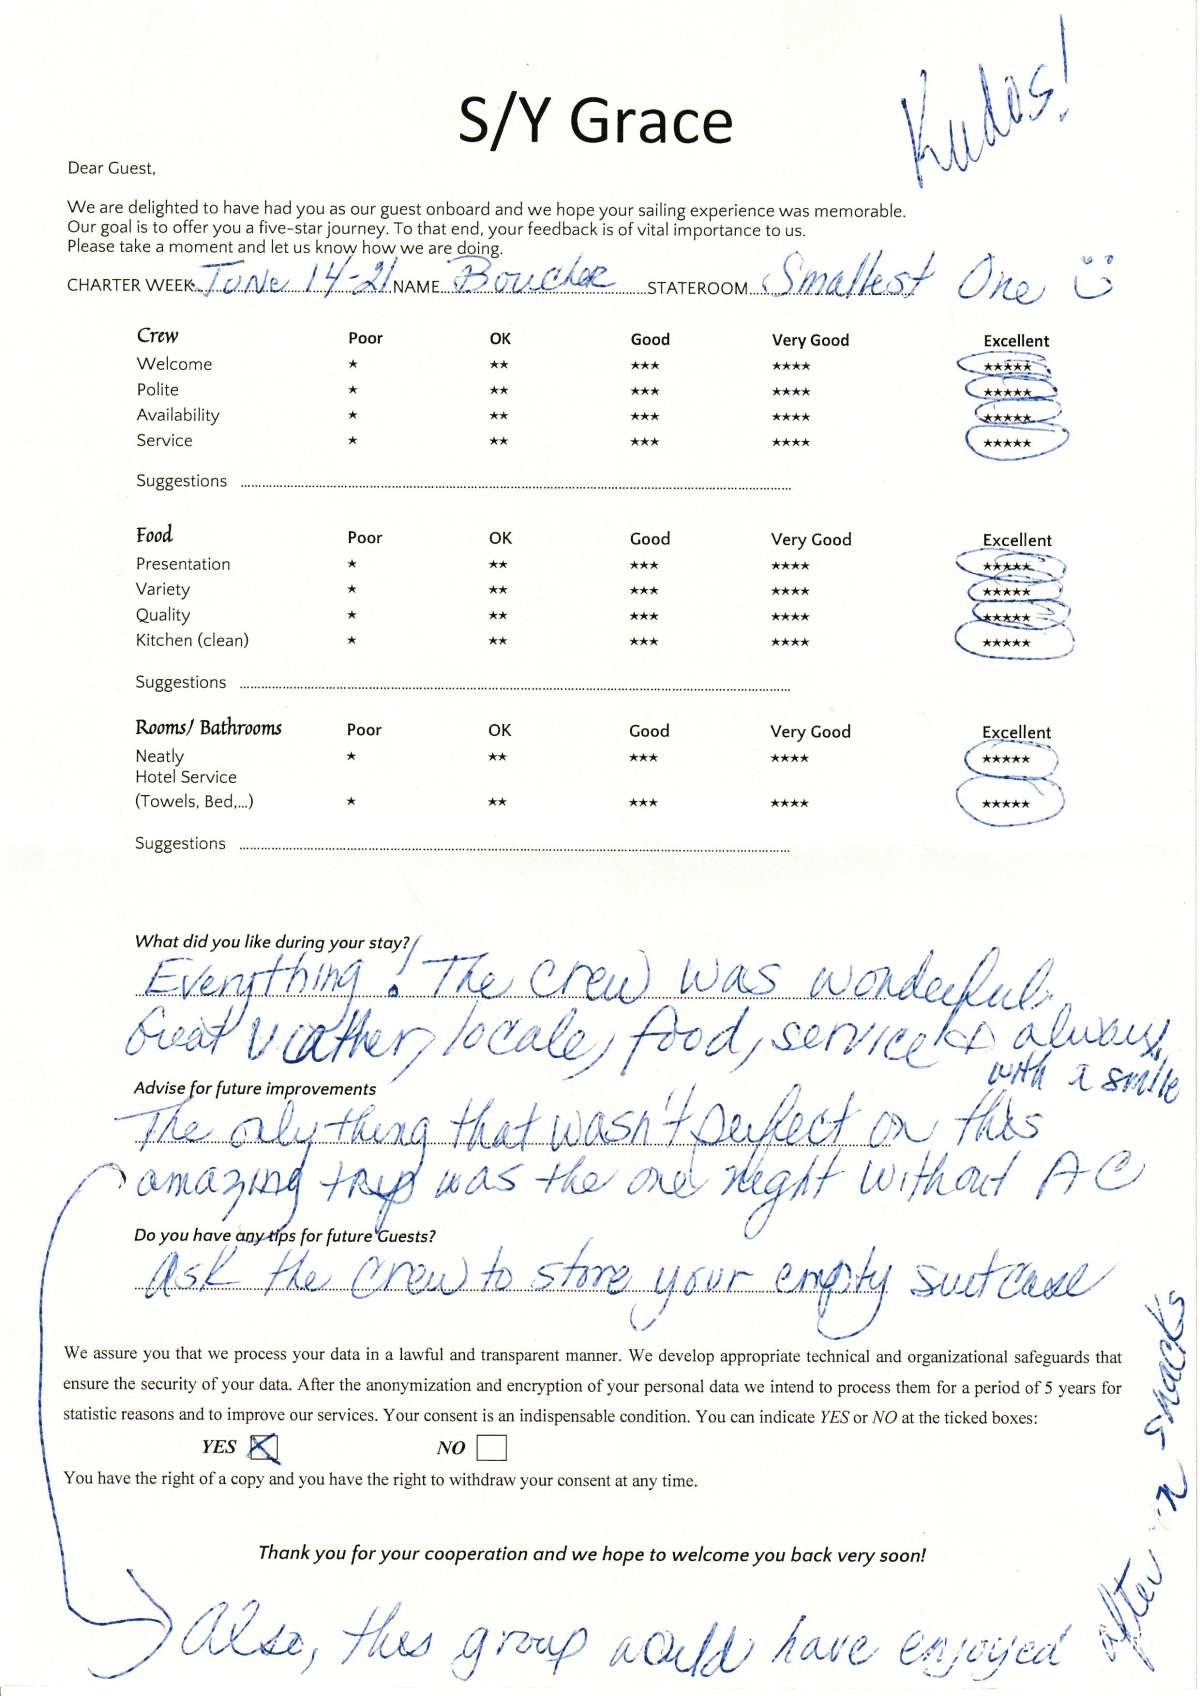 Kudos!
S/Y Grace
Dear Guest,
We are delighted to have had you as our guest onboard and we hope your sailing experience was memorable.
Our goal is to offer you a five-star journey. To that end, your feedback is of vital importance to us.
Please take a moment and let us know how we are doing.
CHARTER WEEK: June 14-21 NAME Boucher STATEROOM Smallest One
Crew Poor OK Good Very Good Excellent
Welcome ★ ★★ ★★★ ★★★★ ★★★★★
Polite ★ ★★ ★★★ ★★★★ ★★★★★
Availability ★ ★★ ★★★ ★★★★ ★★★★★
Service ★ ★★ ★★★ ★★★★ ★★★★★
Suggestions
Food Poor OK Good Very Good Excellent
Presentation ★ ★★ ★★★ ★★★★ ★★★★★
Variety ★ ★★ ★★★ ★★★★ ★★★★★
Quality ★ ★★ ★★★ ★★★★ ★★★★★
Kitchen (clean) ★ ★★ ★★★ ★★★★ ★★★★★
Suggestions
Rooms/ Bathrooms Poor OK Good Very Good Excellent
Neatly ★ ★★ ★★★ ★★★★ ★★★★★
Hotel Service
(Towels, Bed,...) ★ ★★ ★★★ ★★★★ ★★★★★
Suggestions
What did you like during your stay?
Everything! The crew was wonderful.
Great weather, locale, food, service & always
with a smile
Advise for future improvements
The only thing that wasn't perfect on this
amazing trip was the one night without AC
Do you have any tips for future Guests?
Ask the crew to store your empty suitcase
We assure you that we process your data in a lawful and transparent manner. We develop appropriate technical and organizational safeguards that
ensure the security of your data. After the anonymization and encryption of your personal data we intend to process them for a period of 5 years for
statistic reasons and to improve our services. Your consent is an indispensable condition. You can indicate YES or NO at the ticked boxes:
YES NO
You have the right of a copy and you have the right to withdraw your consent at any time.
Thank you for your cooperation and we hope to welcome you back very soon!
Also, this group would have enjoyed
snacks